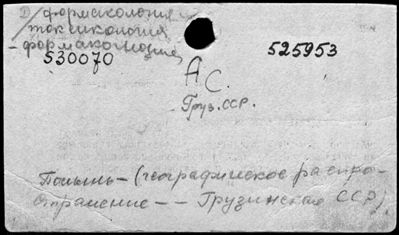 фармакология
токсикология
- фармакогнозия
530070
525953
АС.
Груз. ССР.
Полынь - (географическое распро-
странение - - Грузинская ССР)